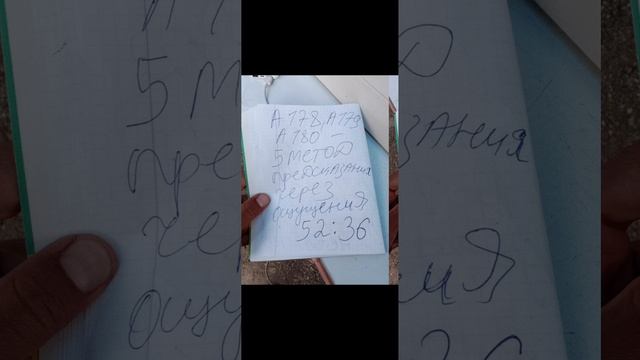 А178, А179
А180 –
5 МЕТОД
предсказания
через
ощущения
52:36